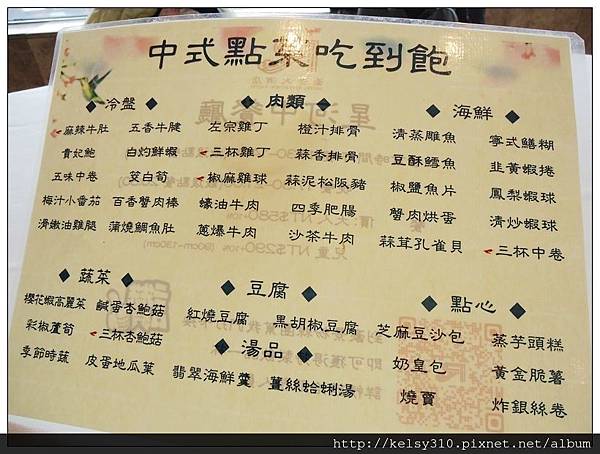 中式點菜吃到飽
冷盤
麻辣牛肚 五香牛腱
貴妃鮑 白灼鮮蝦
五味中卷 茭白筍
梅汁小番茄 百香蟹肉棒
滑嫩油雞腿 蒲燒鯛魚肚
肉類
左宗雞丁 橙汁排骨
三杯雞丁 蒜香排骨
椒麻雞球 蒜泥松阪豬
蠔油牛肉 四季肥腸
蔥爆牛肉 沙茶牛肉
海鮮
清蒸鵰魚 寧式鱔糊
豆酥鱈魚 韭黃蝦捲
椒鹽魚片 鳳梨蝦球
蟹肉烘蛋 清炒蝦球
蒜茸孔雀貝 三杯中卷
蔬菜
櫻花蝦高麗菜 鹹蛋杏鮑菇
彩椒蘆筍 三杯杏鮑菇
季節時蔬 皮蛋地瓜葉
豆腐
紅燒豆腐 黑胡椒豆腐
湯品
翡翠海鮮羹 薑絲蛤蜊湯
點心
芝麻豆沙包 蒸芋頭糕
奶皇包 黃金脆薯
燒賣 炸銀絲卷
http://kelsy310.pixnet.net/album